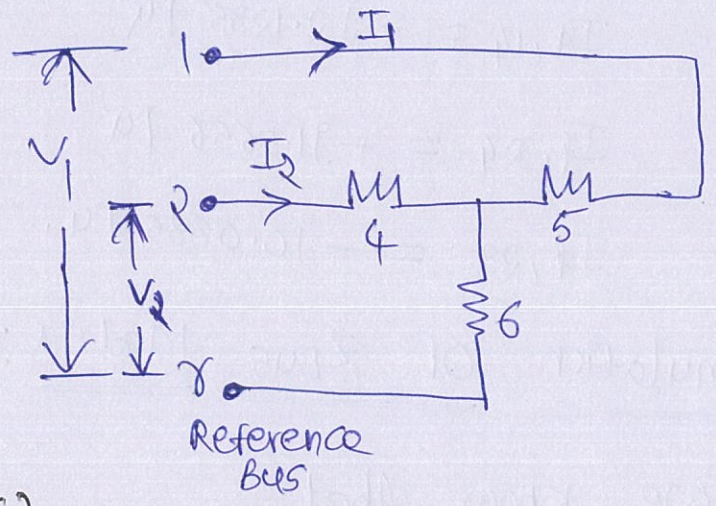 I1
1
V1
I2
2
4
5
V2
6
r
Reference
Bus